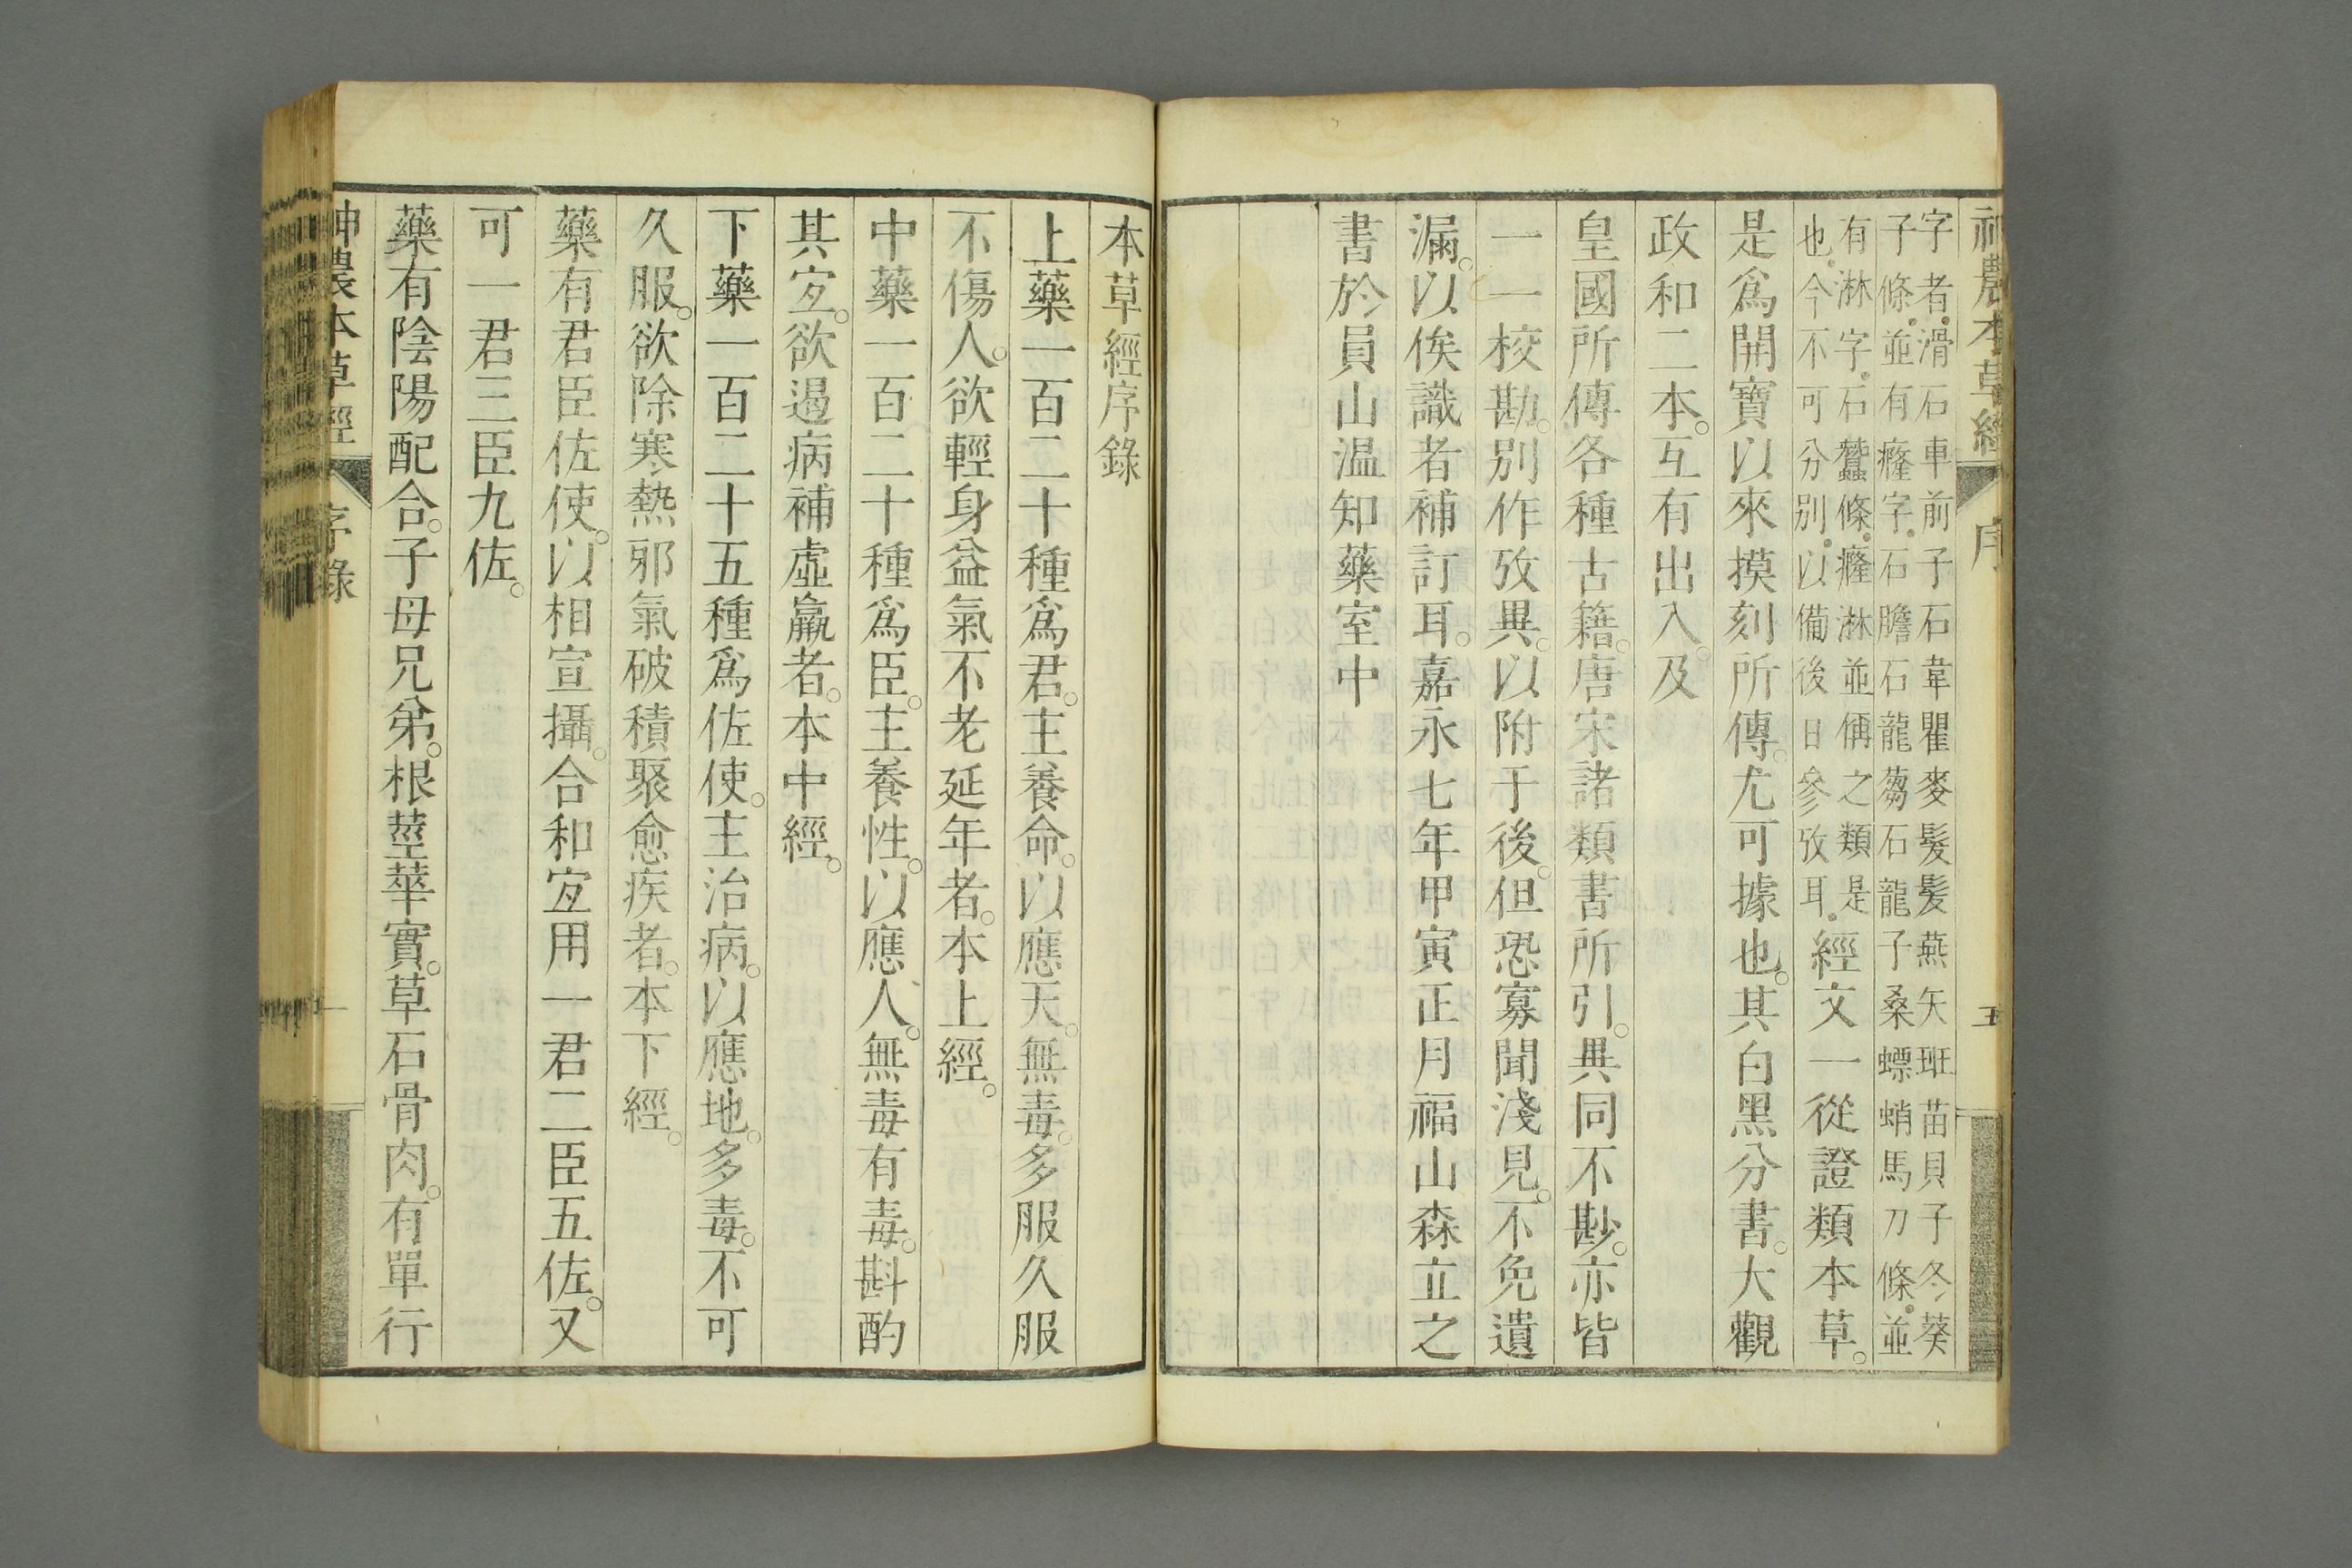 神農本草經 序 五
字者。滑石車前子石韋瞿麥髮髲燕矢班苗貝子冬葵
子條。並有癃字。石膽石龍蒭石龍子桑螵蛸馬刀條。並
有淋字。石蠶條。癃淋並偁之類是
也。今不可分別。以備後日參攷耳。
經文一從證類本草。
是爲開寶以來摸刻所傳。尤可據也。其白黑分書。大觀
政和二本。互有出入。及
皇國所傳各種古籍。唐宋諸類書所引。異同不尠。亦皆
一一校勘。別作攷異。以附于後。但恐寡聞淺見。不免遺
漏。以俟識者補訂耳。嘉永七年甲寅正月福山森立之
書於員山温知藥室中
本草經序錄
上藥一百二十種爲君。主養命。以應天。無毒。多服久服
不傷人。欲輕身益氣不老延年者。本上經。
中藥一百二十種爲臣。主養性。以應人。無毒有毒。斟酌
其宐。欲遏病補虛羸者。本中經。
下藥一百二十五種爲佐使。主治病。以應地。多毒。不可
久服。欲除寒熱邪氣破積聚愈疾者。本下經。
藥有君臣佐使。以相宣攝。合和宐用一君二臣五佐。又
可一君三臣九佐。
藥有陰陽配合。子母兄弟。根莖華實。草石骨肉。有單行
神農本草經 序錄 一